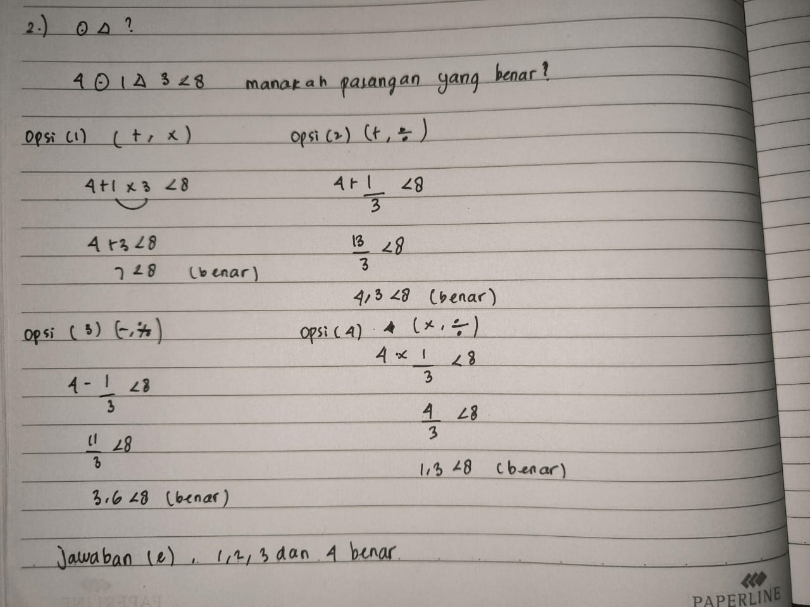 2.) ⊙ △ ?
4 ⊙ 1 △ 3 < 8 manakah pasangan yang benar?
Opsi (1) (+, x)
4+1 x 3 < 8
4+3 < 8
7 < 8 (benar)
Opsi (2) (+, ÷)
4+ 1/3 < 8
13/3 < 8
4,3 < 8 (benar)
Opsi (3) (-, ÷)
4 - 1/3 < 8
11/3 < 8
3,6 < 8 (benar)
Opsi (4) (x, ÷)
4 x 1/3 < 8
4/3 < 8
1,3 < 8 (benar)
Jawaban (e). 1,2,3 dan 4 benar.
PAPERLINE